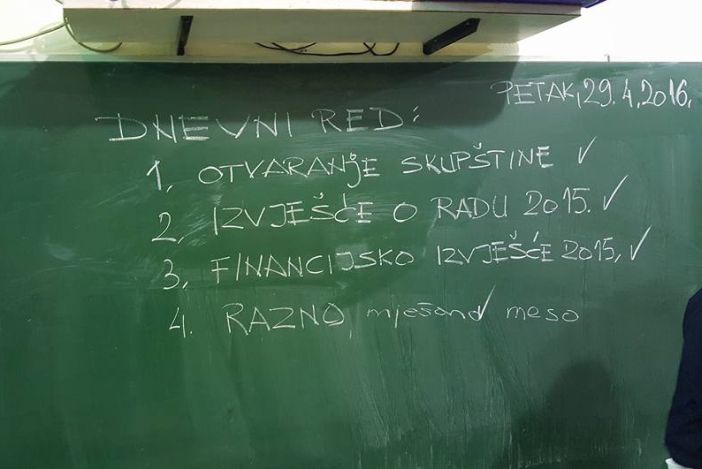 PETAK, 29.4.2016.
DNEVNI RED:
1. OTVARANJE SKUPŠTINE ✓
2. IZVJEŠĆE O RADU 2015. ✓
3. FINANCIJSKO IZVJEŠĆE 2015. ✓
4. RAZNO, mješano ✓ meso